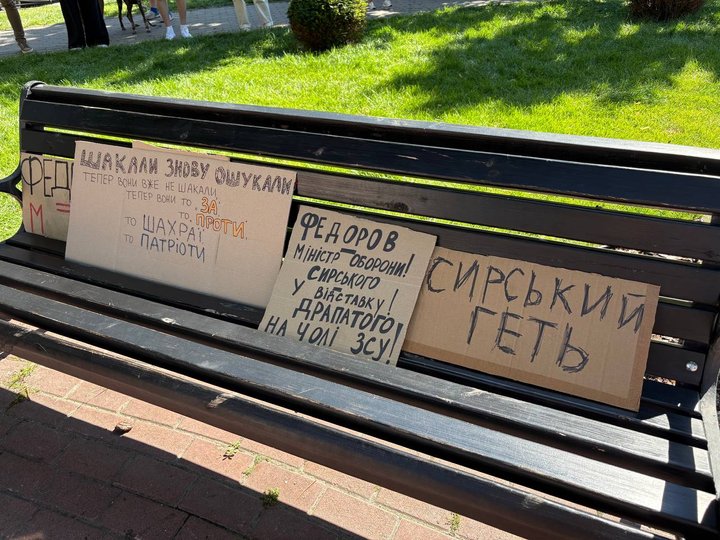 ФЕД
М =
ШАКАЛИ ЗНОВУ ОШУКАЛИ
ТЕПЕР ВОНИ ВЖЕ НЕ ШАКАЛИ,
ТЕПЕР ВОНИ ТО, ЗА
ТО, ПРОТИ
ТО ШАХРАЇ
ТО ПАТРІОТИ
ФЕДОРОВ
МІНІСТР ОБОРОНИ!
СИРСЬКОГО
У ВІДСТАВКУ!
ДРАПАТОГО
НА ЧОЛІ ЗСУ!
СИРСЬКИЙ
ГЕТЬ